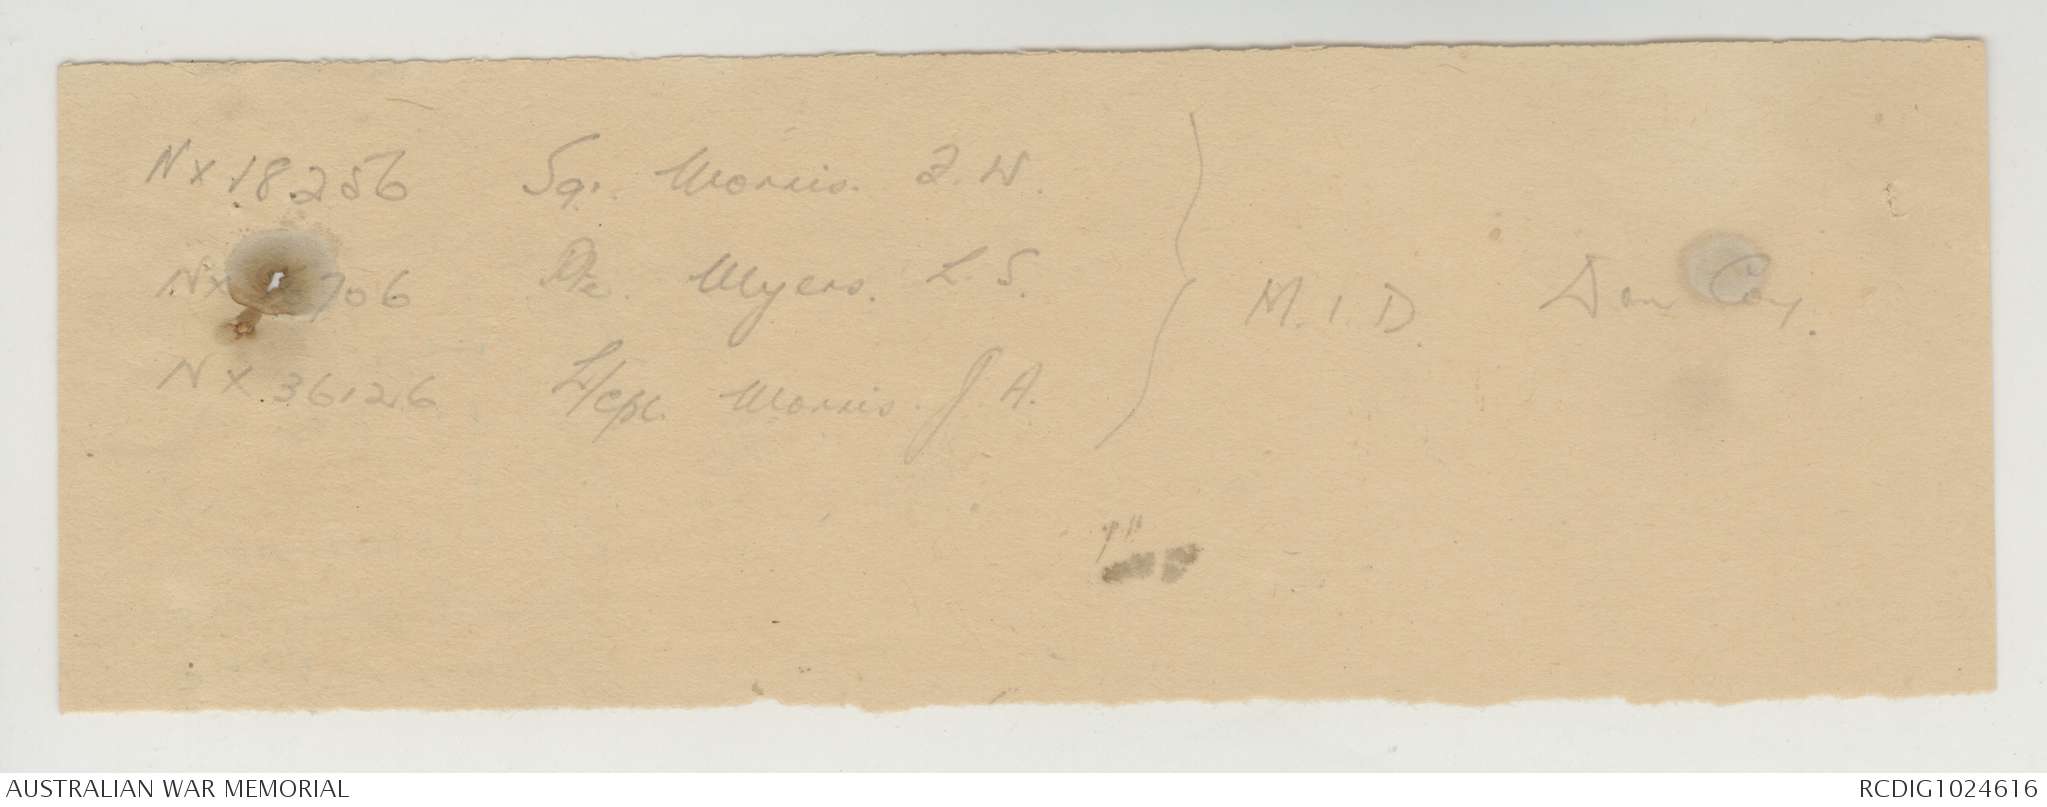 NX 18256 Sgt. Morris. F. W.
NX 706 Pte. Myers. L S.
NX 36126 L/Cpl. Morris. J. A.
M. I. D. Don Coy.
AUSTRALIAN WAR MEMORIAL
RCDIG1024616